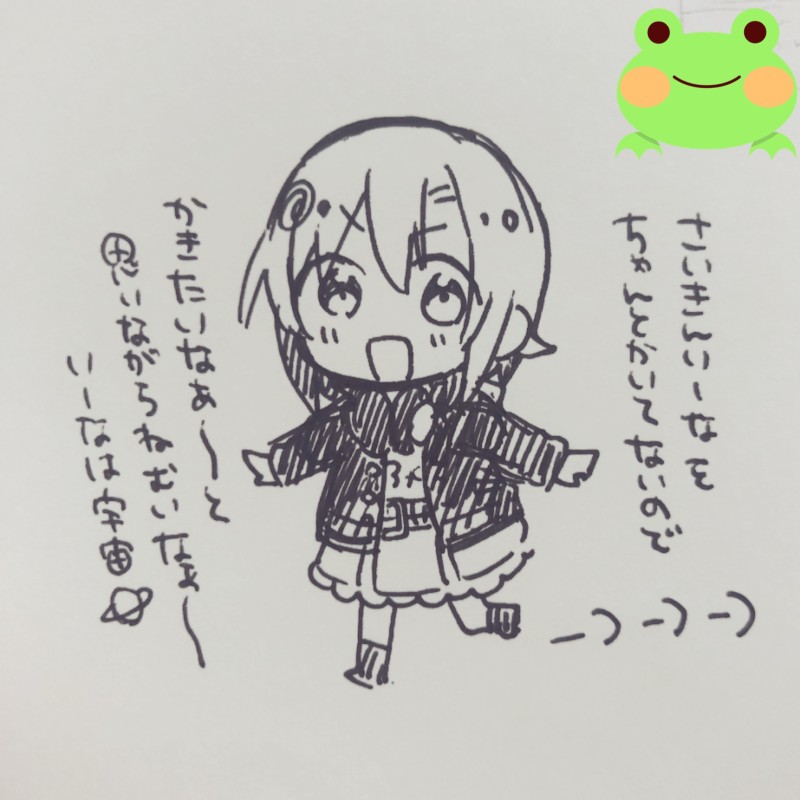 さいきんいーなを
ちゃんとかいてないので
かきたいなぁ〜と
思いながらねむいなぁ〜
いーなは宇宙